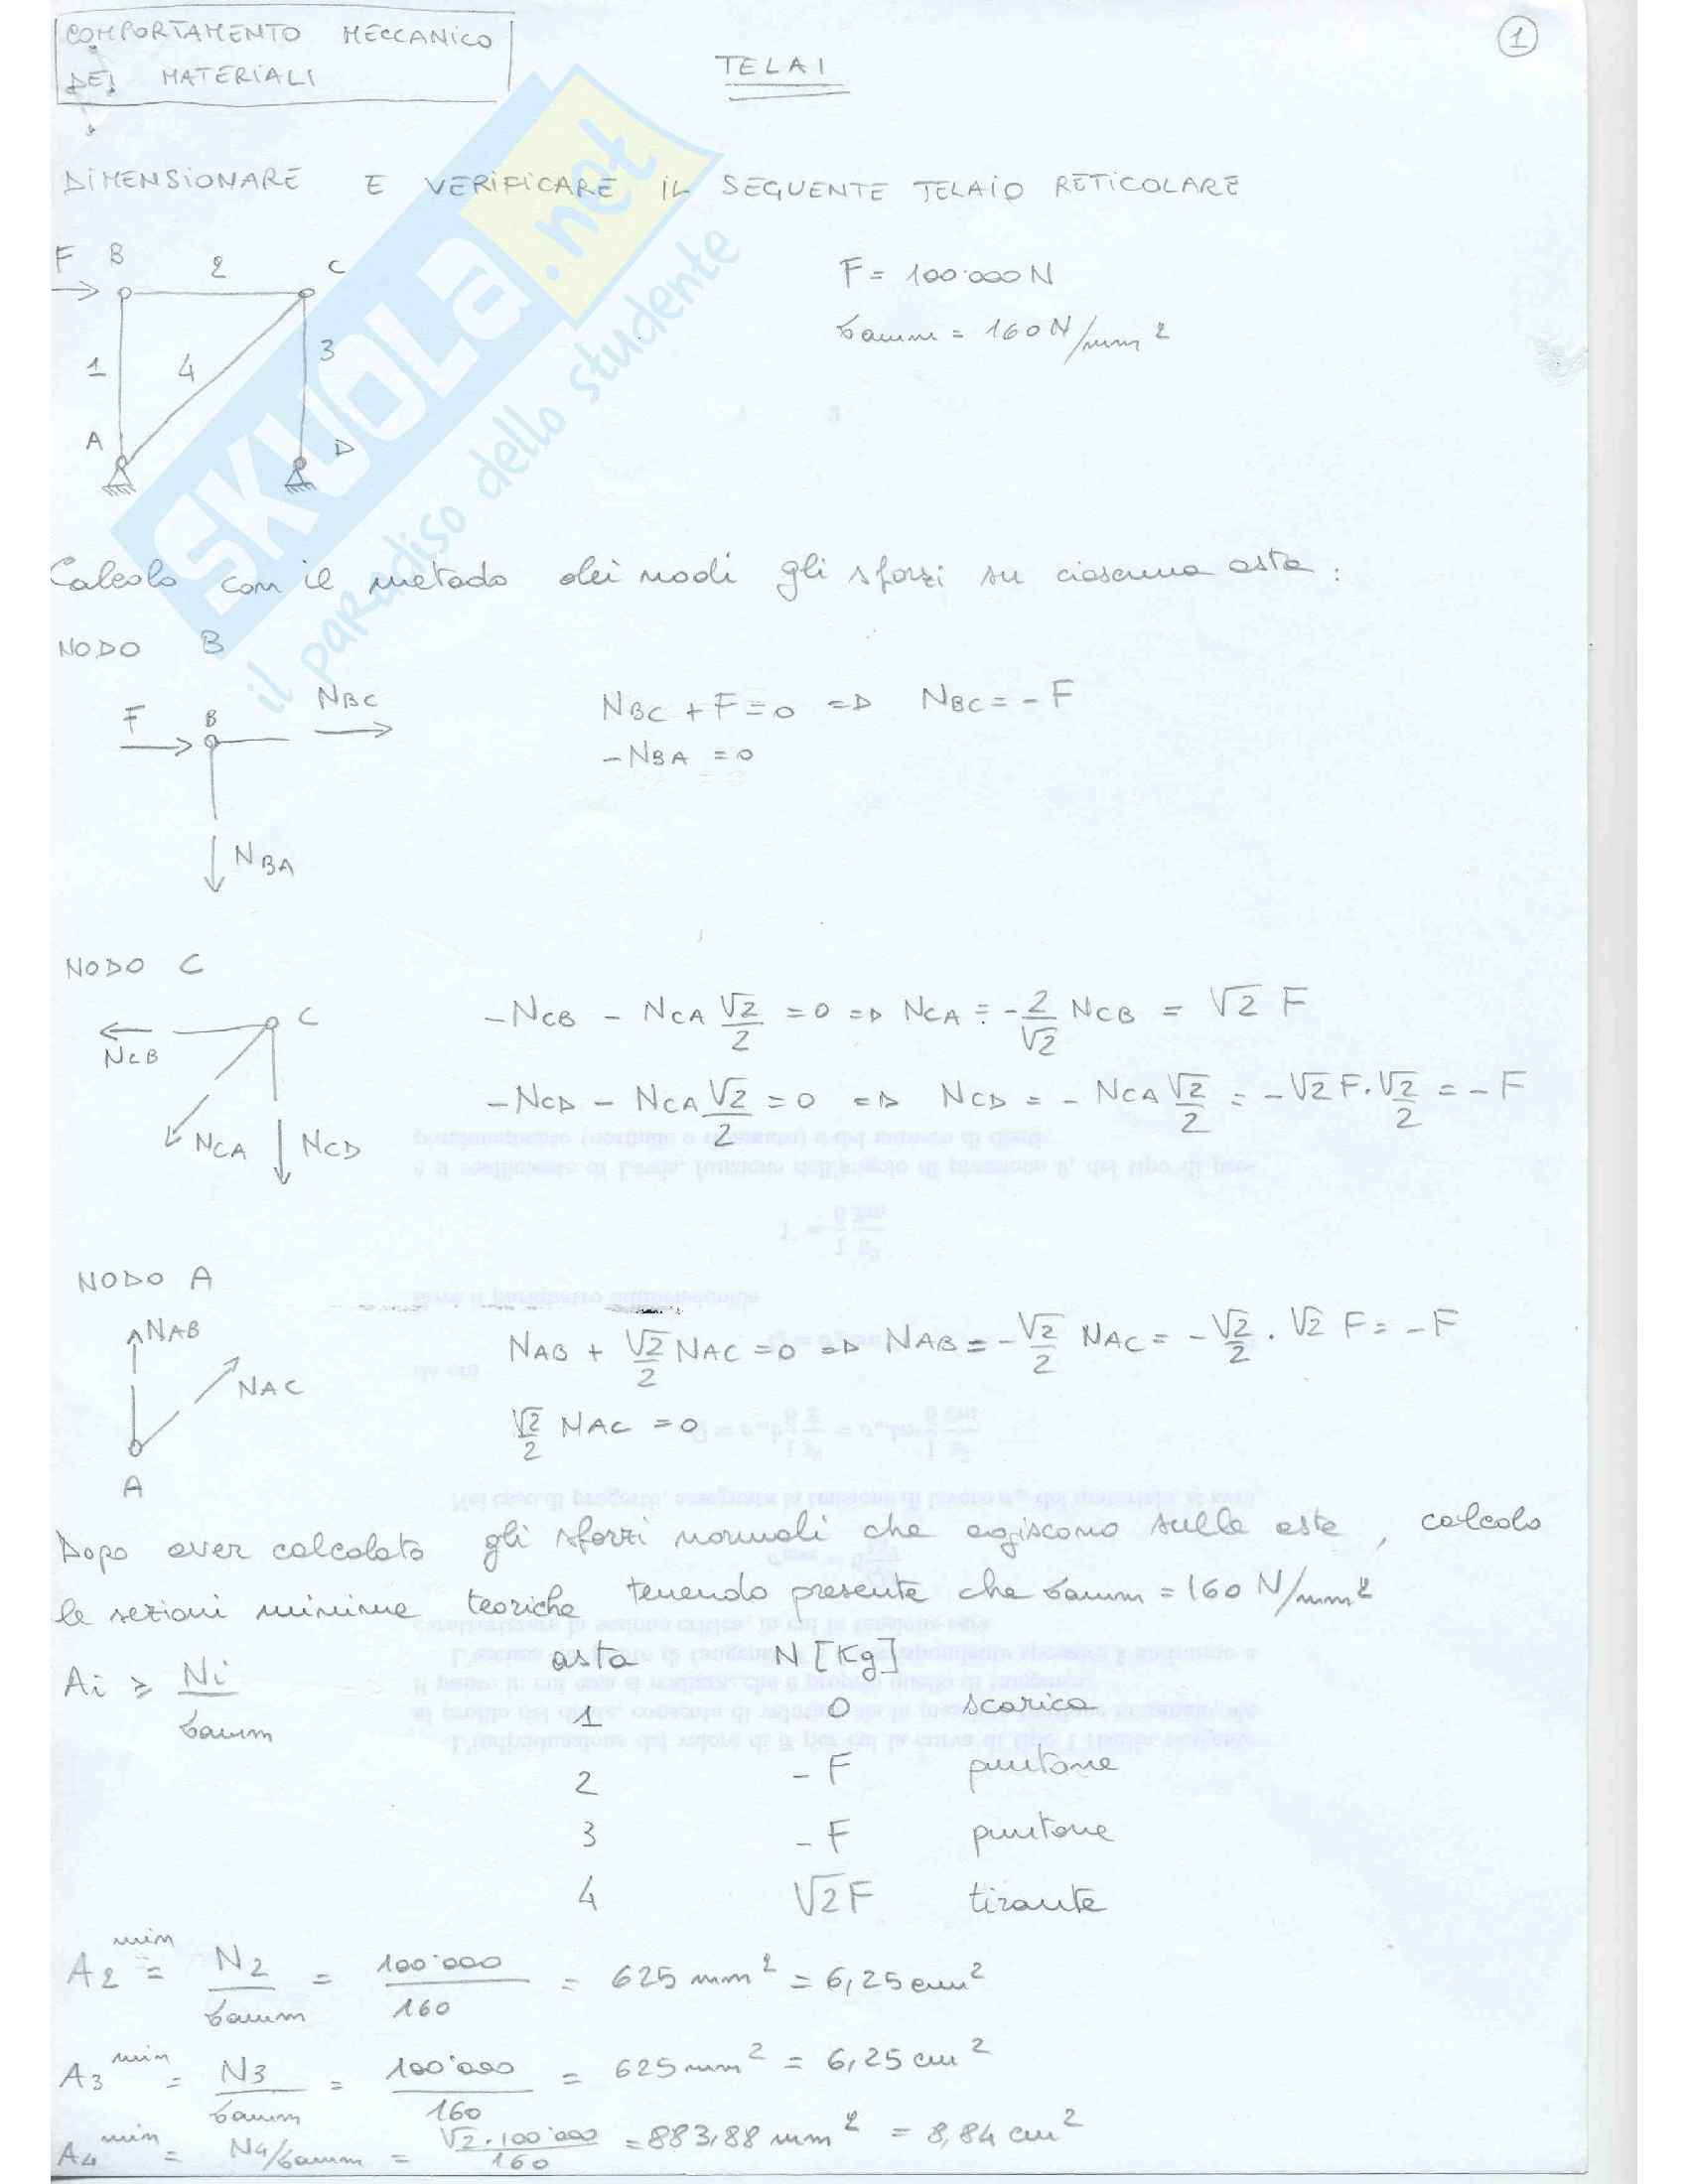 COMPORTAMENTO MECCANICO
DEI MATERIALI
1
TELAI
DIMENSIONARE E VERIFICARE IL SEGUENTE TELAIO RETICOLARE
F B 2 C
1 4 3
A D
F = 100'000 N
σamm = 160 N/mm²
SKUOLA.net
il paradiso dello studente
Calcolo con il metodo dei nodi gli sforzi su ciascuna asta :
NODO B
F B NBC
NBA
NBC + F = 0 => NBC = - F
- NBA = 0
NODO C
C
NCB
NCA NCD
- NCB - NCA √2/2 = 0 => NCA = - 2/√2 NCB = √2 F
- NCD - NCA √2/2 = 0 => NCD = - NCA √2/2 = - √2 F · √2/2 = - F
NODO A
NAB
NAC
A
NAB + √2/2 NAC = 0 => NAB = - √2/2 NAC = - √2/2 · √2 F = - F
√2/2 NAC = 0
Dopo aver calcolato gli sforzi normali che agiscono sulle aste, calcolo
le sezioni minime teoriche tenendo presente che σamm = 160 N/mm²
Ai ⩾ Ni/σamm
asta N [Kg]
1 0 scarica
2 - F puntone
3 - F puntone
4 √2 F tirante
A2 min = N2/σamm = 100'000/160 = 625 mm² = 6,25 cm²
A3 min = N3/σamm = 100'000/160 = 625 mm² = 6,25 cm²
A4 min = N4/σamm = √2 · 100'000/160 = 883,88 mm² = 8,84 cm²